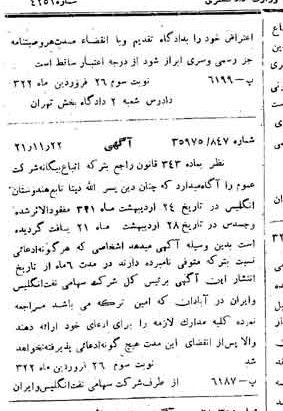 شماره ۴۲۵۱
اعتراض خود را بدادگاه تقدیم وبا انقضاء مدت هروصیتنامه
جز رسمی وسری ابراز شود از درجه اعتبار ساقط است
پ—۶۱۹۹ نوبت سوم ۲۶ فروردین ماه ۳۲۲
دادرس شعبه ۲ دادگاه بخش تهران
شماره ۳۵۹۷۵/۸۴۷ آگهی ۲۱٫۱۱٫۲۲
نظر بماده ۳۴۳ قانون راجع بترکه اتباع بیگانه شرکت
عموم را آگاه میدارد که چنان دین پسر الله دیتا تابع هندوستان
انگلیس در تاریخ ۲۴ اردیبهشت ماه ۳۲۱ مفقودالاثر شده
وجسدش در تاریخ ۲۸ اردیبهشت ماه ۲۱ یافت گردیده
است بدین وسیله آگهی میدهد اشخاصی که هرگونه ادعائی
نسبت بترکه متوفی نامبرده دارند در مدت ۶ ماه از تاریخ
انتشار این آگهی برئیس کل شرکت سهامی نفت انگلیس
وایران در آبادان که امین ترکه می باشد مراجعه
نموده کلیه مدارک لازمه را برای ادعای خود ارائه دهند
والا پس از انقضای این مدت هیچ گونه ادعائی پذیرفته نخواهد
شد نوبت سوم ۲۶ فروردین ماه ۳۲۲
پ—۶۱۸۷ از طرف شرکت سهامی نفت انگلیس وایران